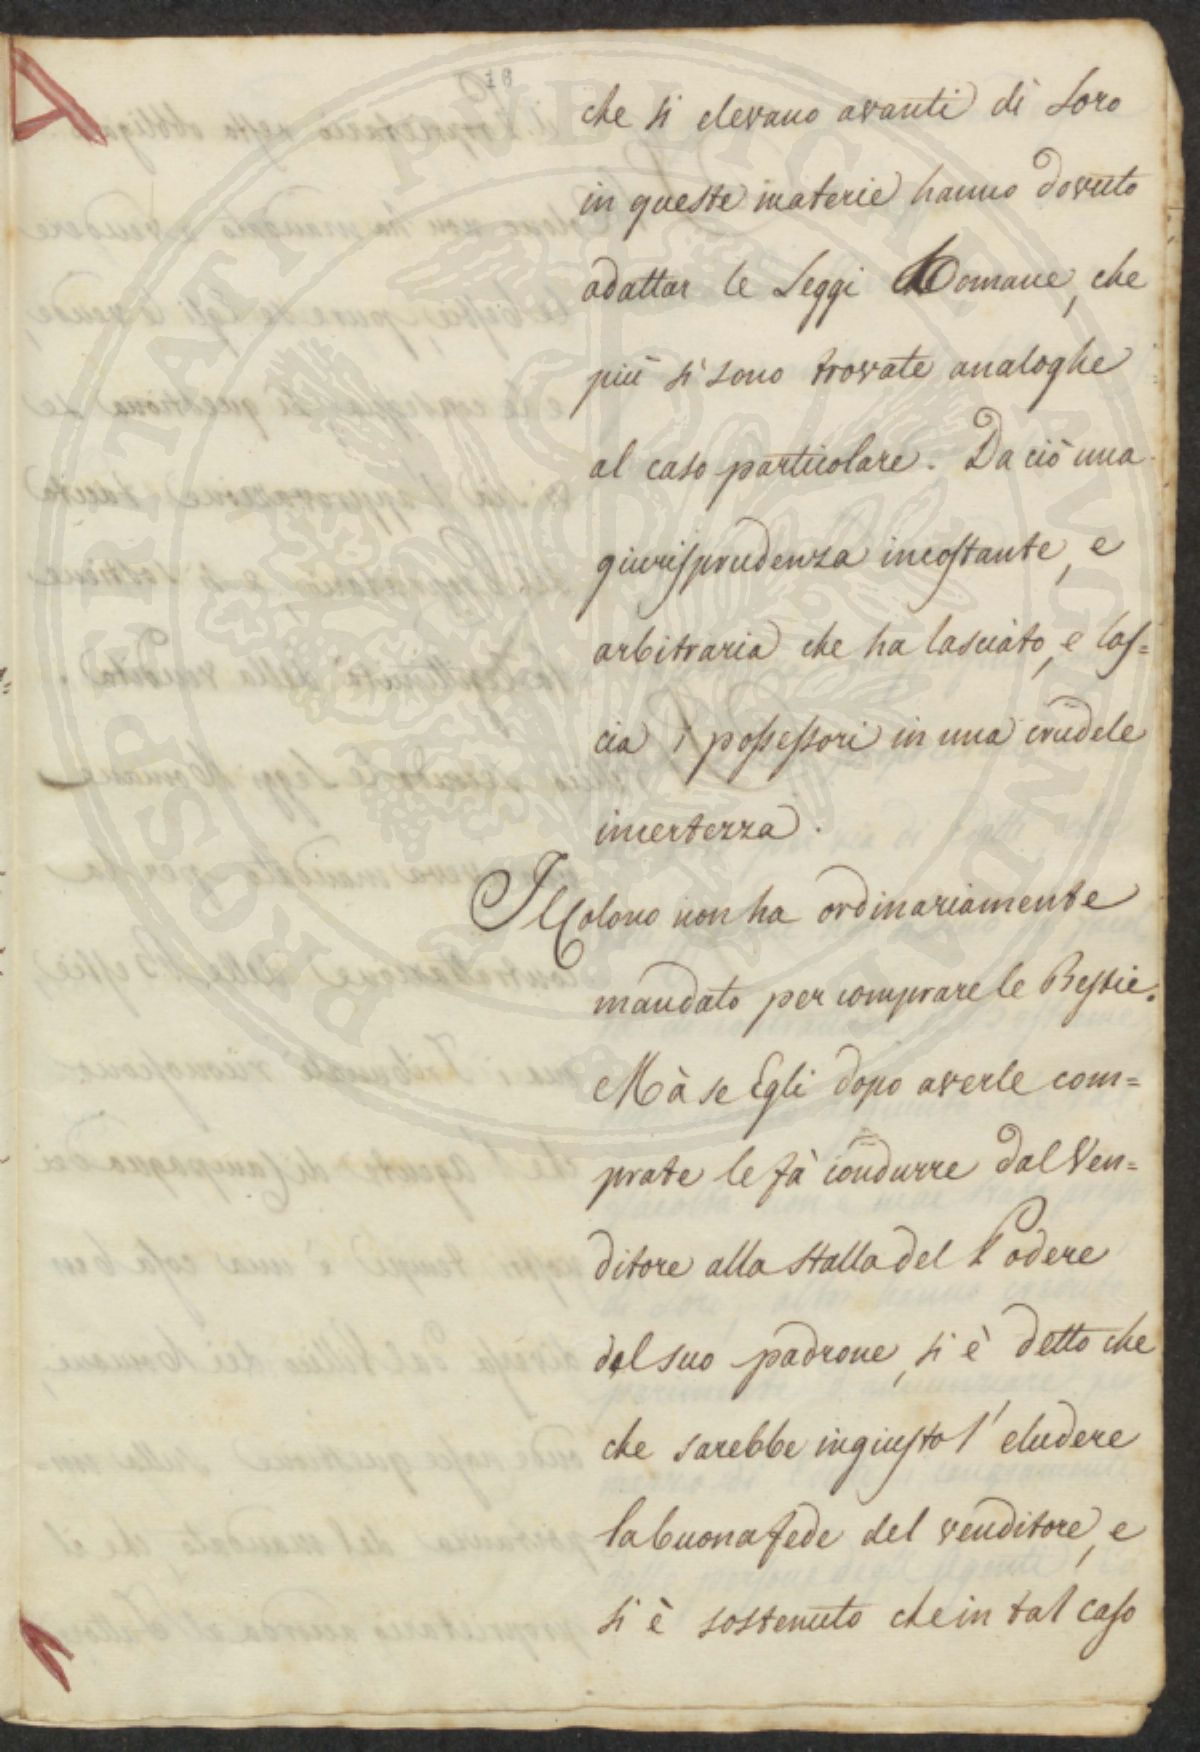 18
che si elevano avanti di Loro
in queste materie hanno dovuto
adattar le Leggi Romane, che
più si sono trovate analoghe
al caso particolare. Da ciò una
giurisprudenza incostante, e
arbitraria che ha lasciàto, e las=
cia i possessori in una crudele
incertezza.
Il Colono non ha ordinariamente
mandato per comprare le Bestie.
Mà se Egli dopo averle com=
prate le fà condurre dal Ven=
ditore alla stalla del Podere
del suo padrone, si è detto che
che sarebbe ingiusto l'eludere
la buona fede del venditore, e
si è sostenuto che in tal caso
PROSPERITATI PVBLICAE AVGENDAE